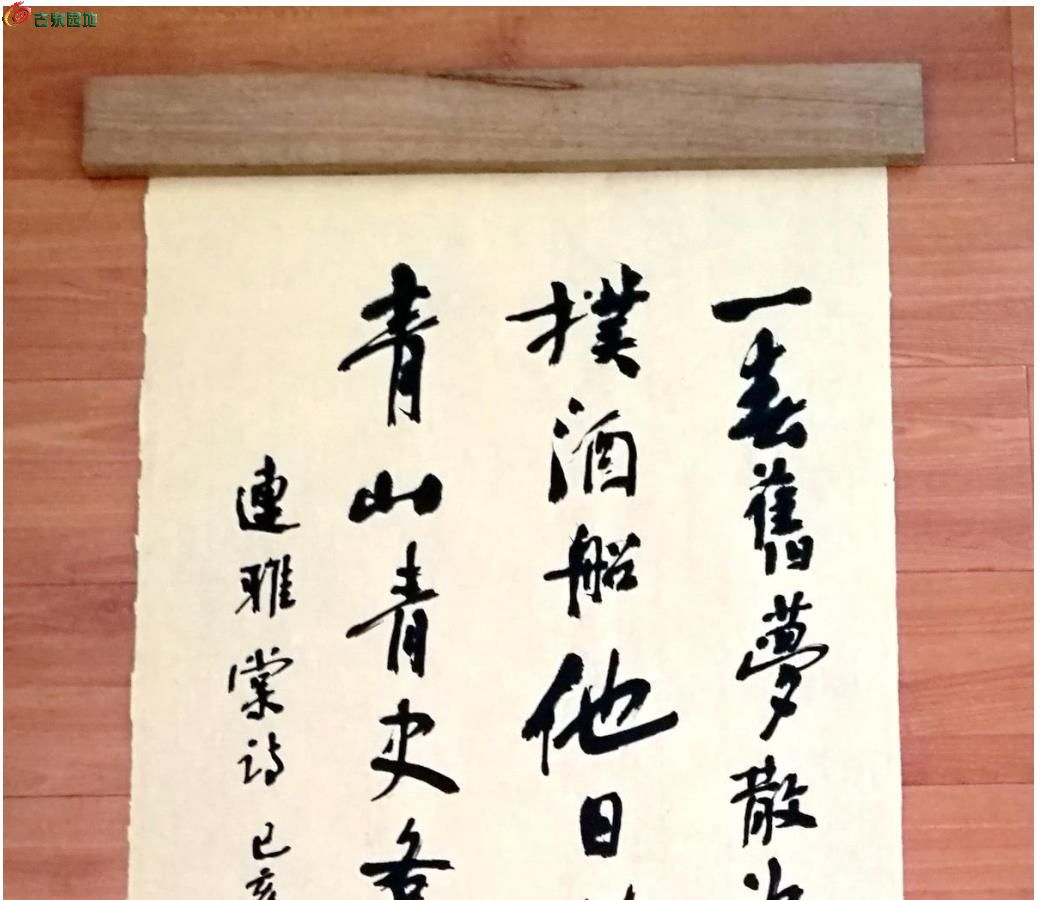 古泉园地
一春舊夢散
撲酒船他日
青山青史各
連雅棠詩己亥